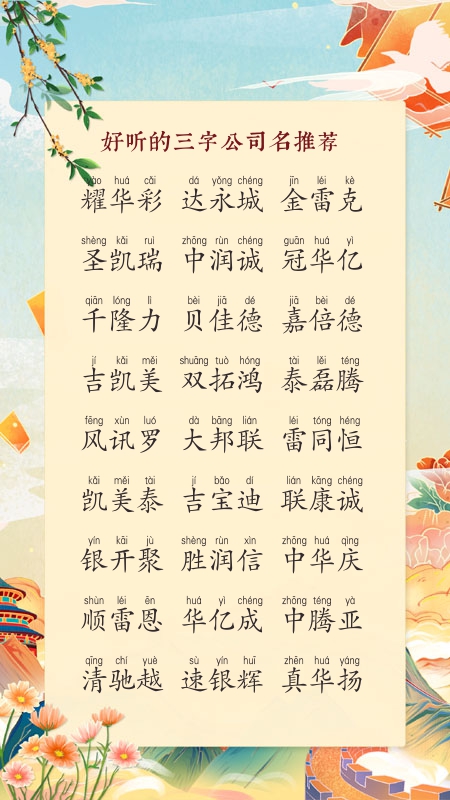 好听的三字公司名推荐
yào huá cǎi dá yǒng chéng jīn léi kè
耀华彩 达永城 金雷克
shèng kǎi ruì zhōng rùn chéng guān huá yì
圣凯瑞 中润诚 冠华亿
qiān lóng lì bèi jiā dé jiā bèi dé
千隆力 贝佳德 嘉倍德
jí kǎi měi shuāng tuò hóng tài lěi téng
吉凯美 双拓鸿 泰磊腾
fēng xùn luó dà bāng lián léi tóng héng
风讯罗 大邦联 雷同恒
kǎi měi tài jí bǎo dí lián kāng chéng
凯美泰 吉宝迪 联康诚
yín kāi jù shèng rùn xìn zhōng huá qìng
银开聚 胜润信 中华庆
shùn léi ēn huá yì chéng zhōng téng yà
顺雷恩 华亿成 中腾亚
qīng chí yuè sù yín huī zhēn huá yáng
清驰越 速银辉 真华扬